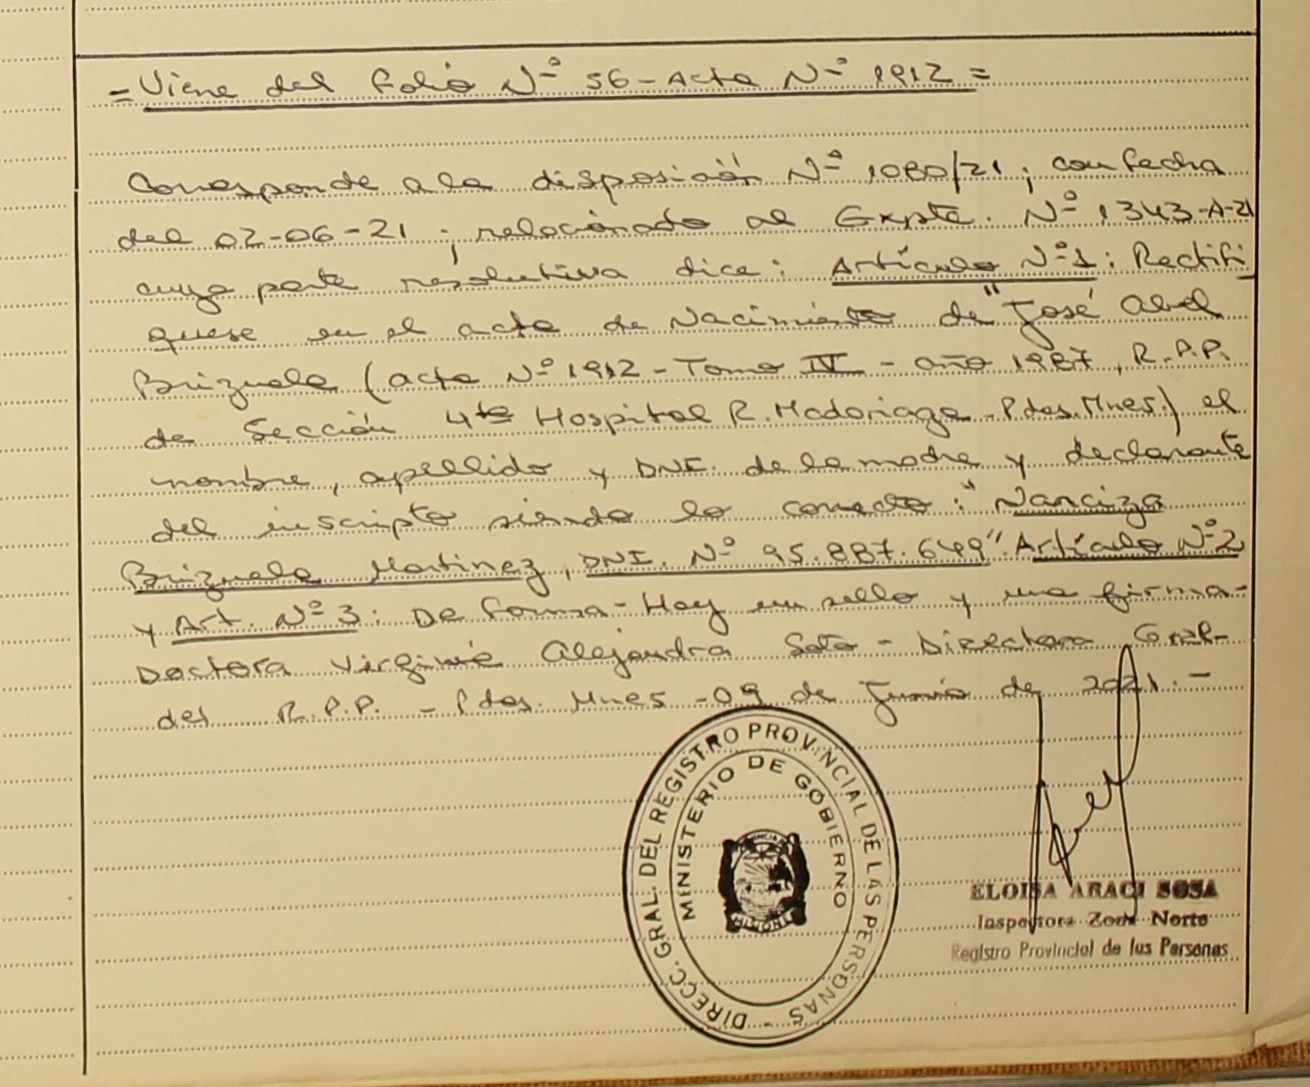 = Viene del folio Nº 56 - Acta Nº 1912 =
Corresponde a la disposición Nº 1080/21; con fecha
del 02-06-21; relacionado al Expte. Nº 1343-A-21
cuya parte resolutiva dice: Artículo Nº 1: Rectifi
quese en el acta de Nacimiento de "José Abel
Brizuela (acta Nº 1912 - Tomo IV - año 1987, R.P.P.
de Sección 4ta Hospital R. Madariaga - P.das. Mnes.) el
nombre, apellido y DNI. de la madre y declarante
del inscripto siendo lo correcto: "Narciza
Brizuela Martinez, DNI. Nº 95.887.649". Artículo Nº 2
y Art. Nº 3: De forma - Hay un sello y una firma -
Doctora Virginia Alejandra Soto - Directora Gral-
del R.P.P. - Pdas. Mnes - 09 de Junio de 2021. -
DIRECC. GRAL. DEL REGISTRO PROVINCIAL DE LAS PERSONAS -
MINISTERIO DE GOBIERNO
MISIONES
ELOISA ARACI SOSA
Inspectora Zona Norte
Registro Provincial de las Personas